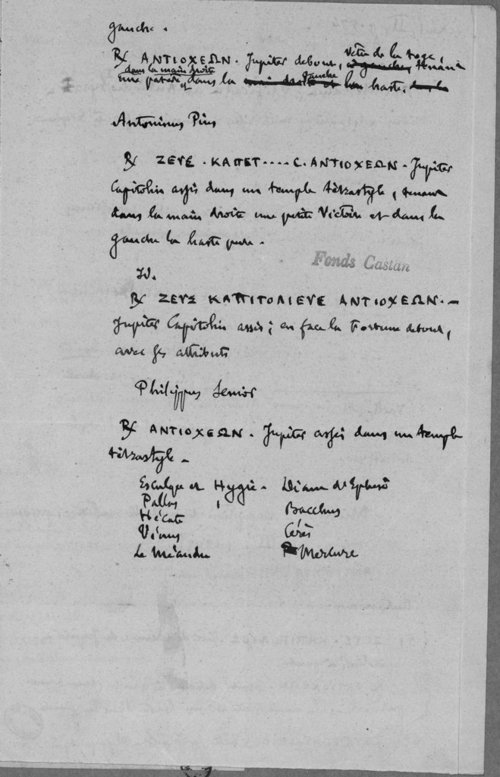 gauche.
℞ ΑΝΤΙΟΧΕΩΝ. Jupiter debout, vêtu de la toge, tenant
dans la main droite
une patère et dans la gauche la haste.
Antoninus Pius
℞ ΖΕΥΣ. ΚΑΠΕΤ....C. ΑΝΤΙΟΧΕΩΝ. Jupiter
Capitolin assis dans un temple tétrastyle, tenant
dans la main droite une petite Victoire et dans la
gauche la haste pure.
Fonds Castan
Id.
℞ ΖΕΥΣ ΚΑΠΙΤΟΛΙΕΥΣ ΑΝΤΙΟΧΕΩΝ. —
Jupiter Capitolin assis; en face la Fortune debout,
avec ses attributs
Philippus Senior
℞ ΑΝΤΙΟΧΕΩΝ. Jupiter assis dans un temple
tétrastyle.
Esculape et Hygie. Diane d'Ephèse
Pallas Bacchus
Hécate Cérès
Vénus Mercure
Le Méandre